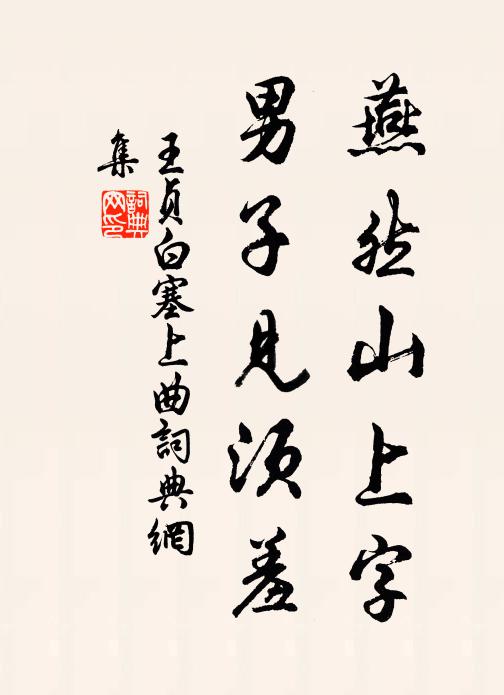 燕然山上字
男子見須羞
王貞白塞上曲詞典網
集
詞典网印